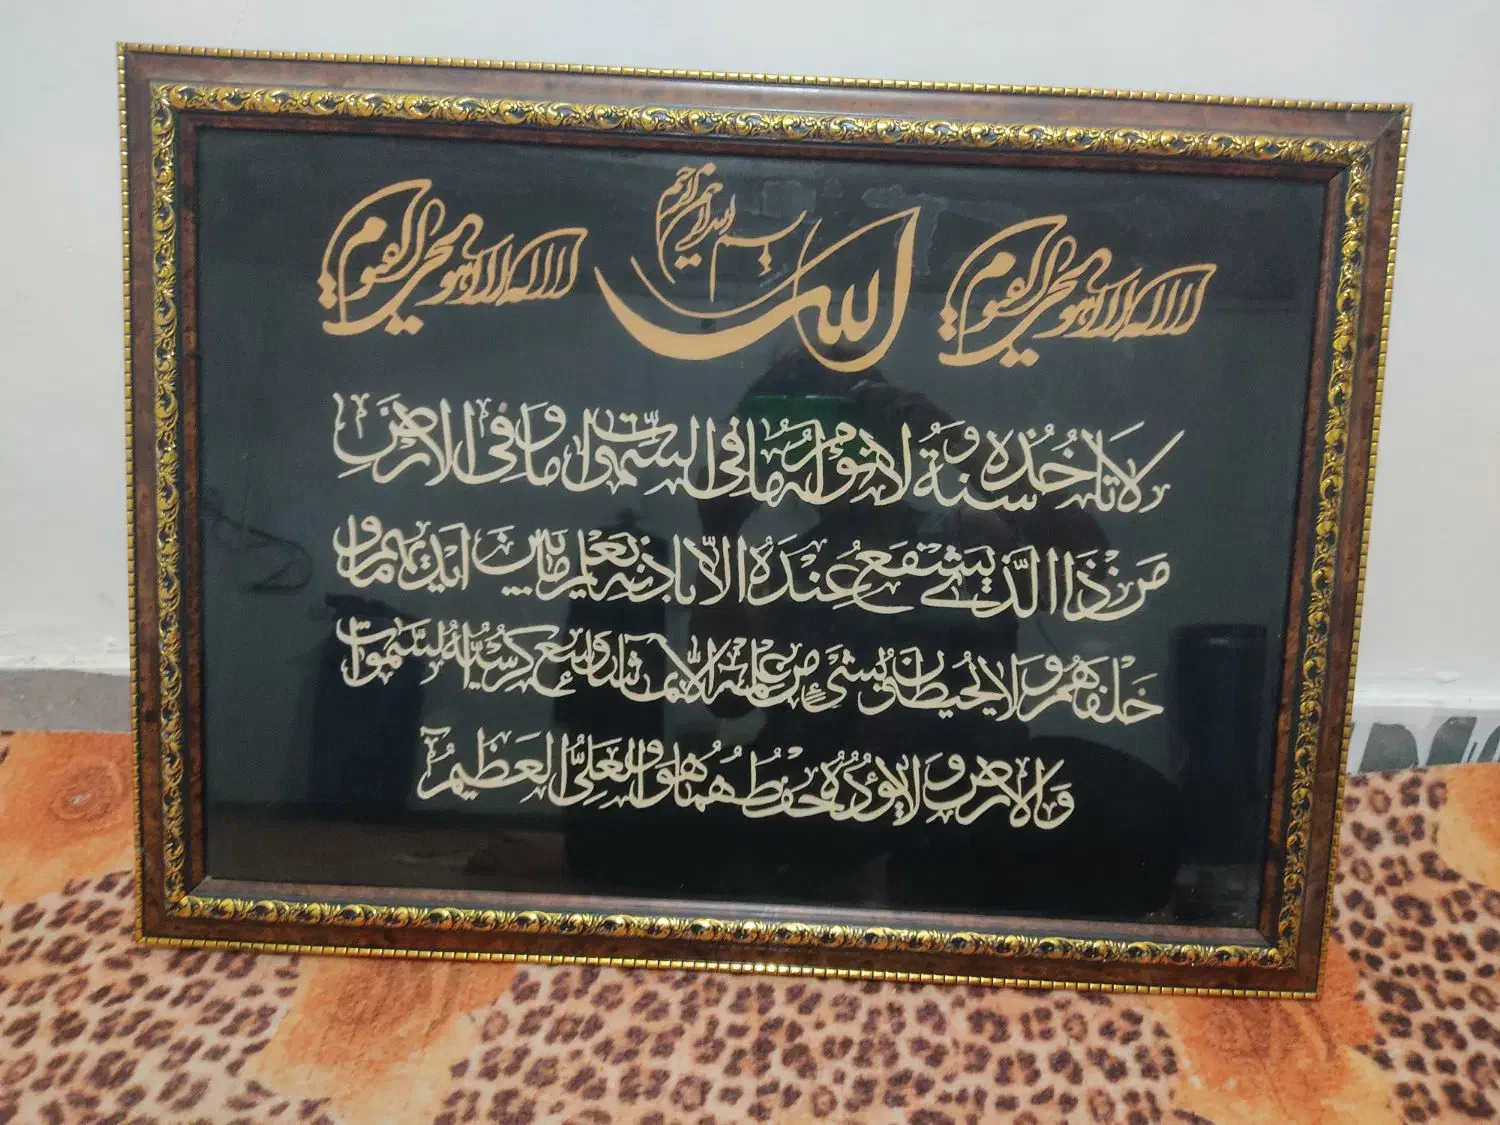 بسم الله الرحمن الرحيم
لا اله الا هو الحي القيوم
الله
لا اله الا هو الحي القيوم
لا تاخذه سنة ولا نوم له ما في السموات وما في الارض
من ذا الذي يشفع عنده الا باذنه يعلم ما بين ايديهم و
خلفهم ولا يحيطون بشئ من علمه الا بما شاء وسع كرسيه السموات
والارض ولا يؤده حفظهما وهو العلي العظيم